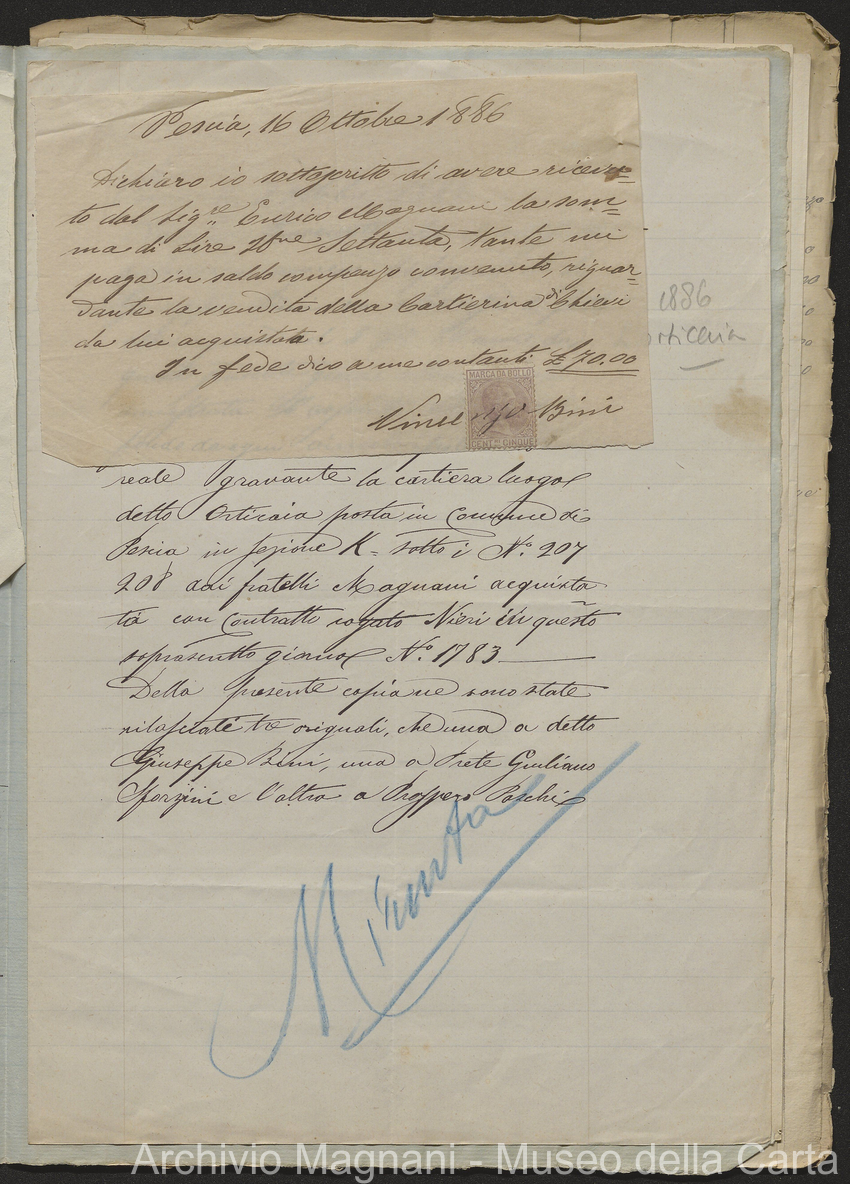 Pescia, 16 Ottobre 1886
Dichiaro io sottoscritto di avere ricevu=
to dal Sig.re Enrico Magnani la som=
ma di Lire It.ne Settanta, tante mi
paga in saldo compenzo convenuto, riguar=
dante la vendita della Cartierina di Chievi
da lui acquistata.
In fede dico a me contanti £ 70.00
MARCA DA BOLLO
CENT.MI CINQUE
Vincenzo Bini
1886
orticaia
reale gravante la cartiera luogo
detto Orticaia posta in Comune di
Pescia in Sezione K= sotto i N.o 207
208 dai fratelli Magnani acquista
ta con Contratto rogato Nieri in questo
soprascritto giorno N.o 1783
Della presente copia ne sono state
rilasciate tre originali, che una a detto
Giuseppe Bini, una a Prete Giuliano
Sforzini e l'altra a Prospero Paschi
Minuta
Archivio Magnani - Museo della Carta